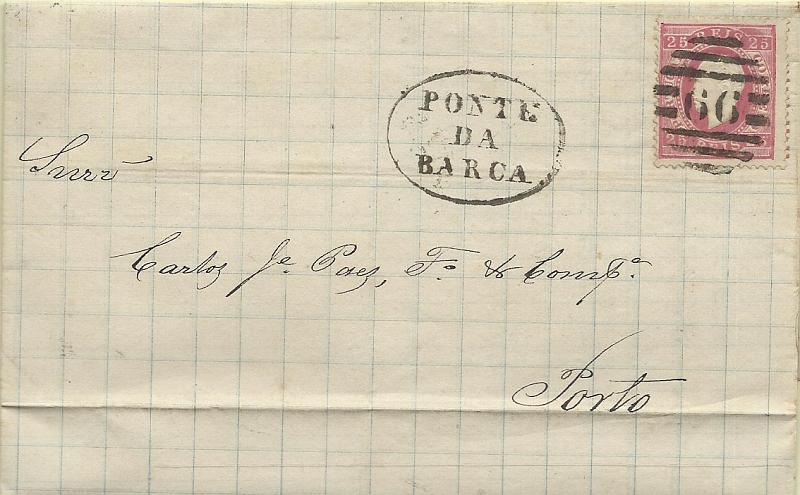 25 REIS 25
66
PONTE
DA
BARCA
Carlos Je. Paes, Fo. & Compa.
Porto